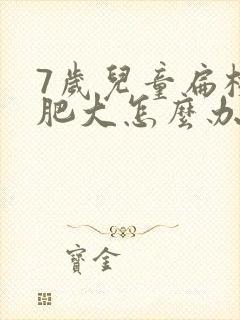 7歲兒童扁
肥大怎麼办
寶金